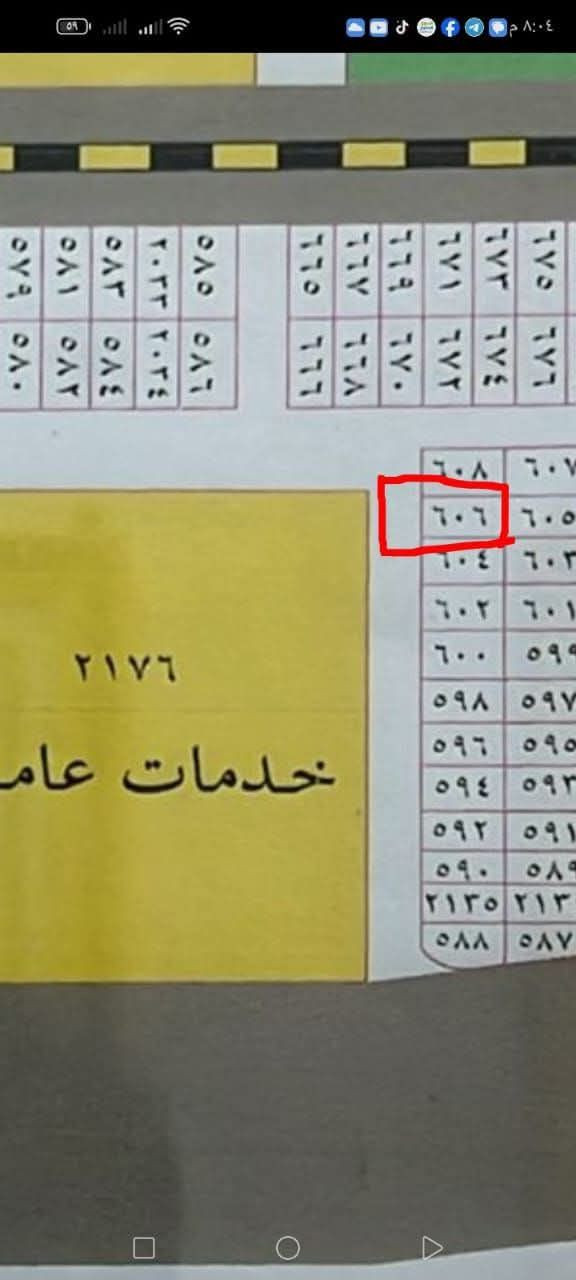 ٨:٠٤ م
٥٩
٥٧٩ ٥٨١ ٥٨٣ ٢٠٣٣ ٥٨٥ ٦٦٥ ٦٦٧ ٦٦٩ ٦٧١ ٦٧٣ ٦٧٥
٥٨٠ ٥٨٢ ٥٨٤ ٢٠٣٤ ٥٨٦ ٦٦٦ ٦٦٨ ٦٧٠ ٦٧٢ ٦٧٤ ٦٧٦
٦٠٨ ٦٠٧
٦٠٦ ٦٠٥
٦٠٤ ٦٠٣
٦٠٢ ٦٠١
٦٠٠ ٥٩٩
٥٩٨ ٥٩٧
٥٩٦ ٥٩٥
٥٩٤ ٥٩٣
٥٩٢ ٥٩١
٥٩٠ ٥٨٩
٢١٣٥ ٢١٣
٥٨٨ ٥٨٧
٢١٧٦
خدمات عام